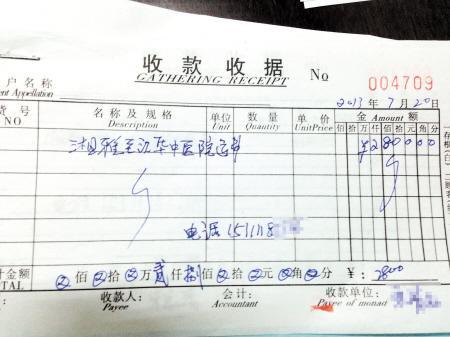 收款收据 No 004709
GATHERING RECEIPT
户名称
ent Appellation
2013年7月20日
货号 名称及规格 单位 数量 单价 金Amount额
NO Description Unit Quantity UnitPrice 佰十万仟佰拾元角分
湘雅至江华中医院运费 ¥280000
电话1511118
计金额 佰 拾 万贰仟捌佰 拾 元 角 分 ¥:2800
TOTAL
收款人: 会计: 收款单位:
Payee Accountant Payee of monad